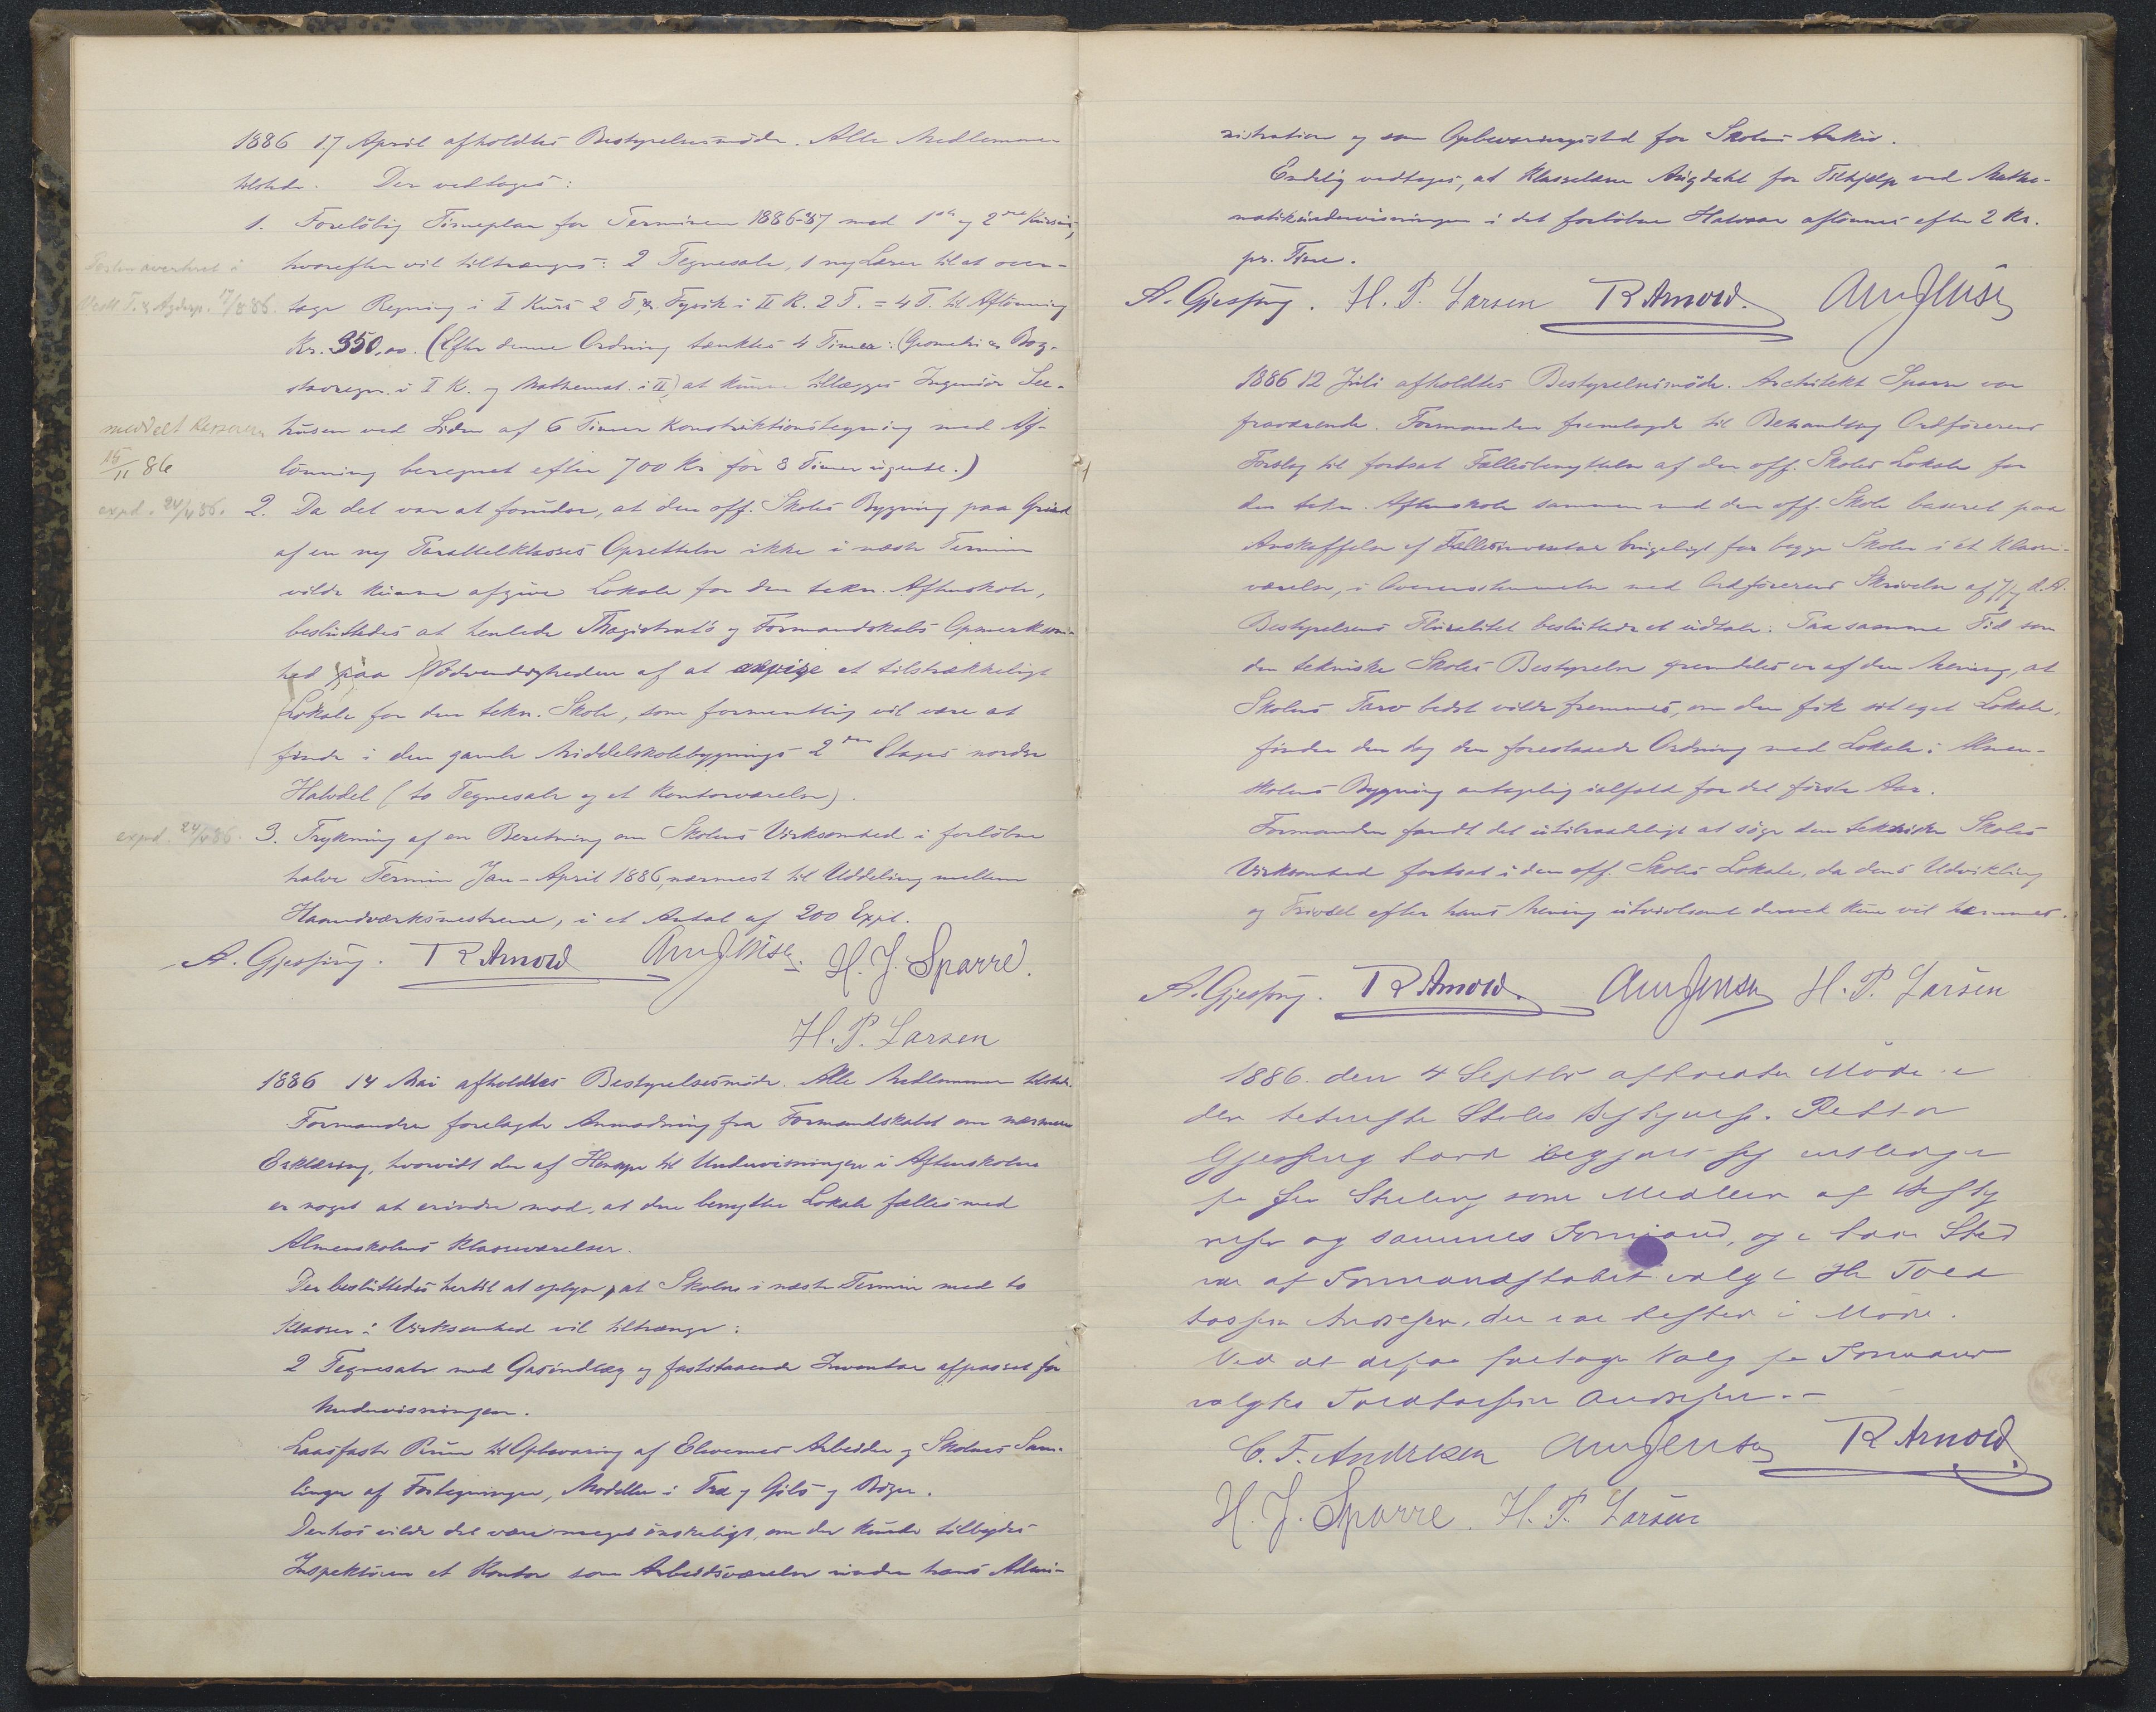 1886 17 April afholdtes Bestyrelsesmöde. Alle Medlemmer
tilstede. Der vedtoges:
1. Forelöbig Timeplan for Terminen 1886-87 med 1ste og 2det Kursus,
hvorefter vil tiltrænges: 2 Tegnesale, 1 ny Lærer til at over-
tage Regning i I Kurs 2 T. & Fysik i II K. 2 T. = 4 T. til Aflönning
Kr. 350,00. (Efter denne Ordning tænktes 4 Timer: (Geometri & Bog-
stavregn. i I K. og Mathemat. i II) at kunne tillægges Ingeniör See-
husen ved Siden af 6 Timer Konstruktionstegning med Af-
lönning beregnet efter 700 Kr for 8 Timer ugentl.)
meddelt Kassereren
15/11 86
exped. 24/4 86.
2. Da det var at forudse, at den off. Skoles Bygning paa Grund
af en ny Parallelklasses Oprettelse ikke i næste Termin
vilde kunne afgive Lokale for den tekn. Aftenskole,
besluttedes at henlede Magistrats og Formandskabs Opmærksom-
hed paa Nödvendigheden af at anvise et tilstrækkeligt
Lokale for den tekn. Skole, som formentlig vil være at
finde i den gamle Middelskolebygnings 2den Etages nordre
Halvdel (to Tegnesale og et Kontorværelse).
exped. 24/4 86.
3. Trykning af en Beretning om Skolens Virksomhed i forlöbne
halve Termin Jan - April 1886, nærmest til Uddeling mellem
Haandværksmestrene, i et Antal af 200 Expl.
A. Gjessing. R Arnold Aug Jensen. H. J. Sparre.
H. P. Larsen
1886 14 Mai afholdtes Bestyrelsesmöde. Alle Medlemmer tilstede.
Formanden forelagde Anmodning fra Formandskabet om nærmere
Erklæring, hvorvidt der af Hensyn til Undervisningen i Aftenskolen
er noget at erindre mod, at den benytter Lokale fælles med
Almenskolens Klasseværelser.
Der besluttedes hertil at oplyse, at Skolen i næste Termin med to
Klasser i Virksomhed vil tiltrænge:
2 Tegnesale med Gasindlæg og faststaaende Inventar afpasset for
Undervisningen.
Laasfaste Rum til Opbevaring af Elevernes Arbeider og Skolens Sam-
linger af Fortegninger, Modeller i Træ og Gibs og Böger.
Derhos vilde det være meget önskeligt, om der kunde tilbydes
Inspektören et Kontor som Arbeidsværelse under hans Admi-
nistration og som Opbevaringssted for Skolens Arkiv.
Endelig vedtoges, at Klasselærer Augdahl for Tilhjælp ved Mathe-
matikundervisningen i det forlöbne Halvaar aflönnes efter 2 Kr.
pr. Time.
A. Gjessing. H. P. Larsen R Arnold. Aug Jensen
1886 12 Juli afholdtes Bestyrelsesmöde. Architekt Sparre var
fraværende. Formanden fremlagde til Behandling Ordförerens
Forslag til fortsat Fællesbenyttelse af den off. Skoles Lokale for
den tekn. Aftenskole sammen med den off. Skole baseret paa
Anskaffelse af Fællesinventar brugeligt for begge Skoler i et Klasse-
værelse, i Overensstemmelse med Ordförerens Skrivelse af 7/7 d.A.
Bestyrelsens Pluralitet besluttede at udtale: Paa samme Tid som
den tekniske Skoles Bestyrelse fremdeles er af den Mening, at
Skolens Tarv bedst vilde fremmes, om den fik sit eget Lokale,
finder den dog den foreslaaede Ordning med Lokale i Almen-
skolens Bygning antagelig ialfald for det förste Aar.
Formanden fandt det utilraadeligt at söge den tekniske Skoles
Virksomhed fortsat i den off. Skoles Lokale, da dens Udvikling
og Trivsel efter hans Mening utvivlsomt derved kun vil hæmmes.
A. Gjessing. R Arnold. Aug Jensen H. P. Larsen
1886. den 4 Septbr afholdtes Möde i
den tekniske Skoles Bestyrelse. Rektor
Gjessing havde begjært sig entlediget
fra sin Stilling som Medlem af Besty
relsen og sammes Formand, og i hans Sted
var af Formandskabet valgt Hr Told
kasserer Andresen, der var tilstede i Mödet.
Ved at derpaa foretoges Valg paa Formand
valgtes Toldkasserer Andresen.-
C. F. Andresen Aug Jensen R Arnold.
H. J. Sparre. H. P. Larsen